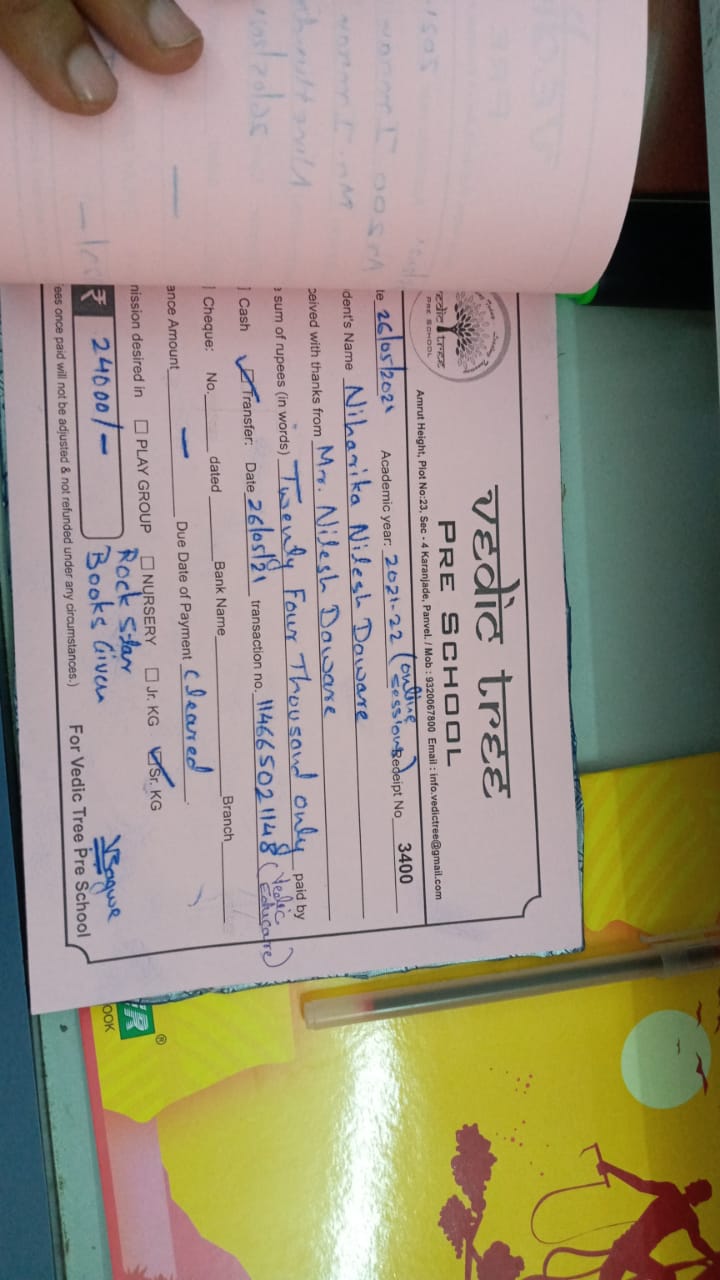 vedic tree
PRE SCHOOL
Amrut Height, Plot No:23, Sec - 4 Karanjade, Panvel. / Mob : 9320067800 Email : info.vedictree@gmail.com
edic tree
PRE SCHOOL
te 26/05/2021 Academic year: 2021-22 (online session) Receipt No 3400
dent's Name Niharika Nilesh Daware
ceived with thanks from Mr. Nilesh Daware
sum of rupees (in words) Twenty Four Thousand only paid by
Cash Transfer: Date 26/05/21 transaction no. 114665021148 (Vedic Educare)
Cheque: No. dated Bank Name Branch
ance Amount — Due Date of Payment cleared
mission desired in PLAY GROUP NURSERY Jr. KG Sr. KG
₹ 24000/- Rock Star
Books Given
ees once paid will not be adjusted & not refunded under any circumstances.) For Vedic Tree Pre School
OOK